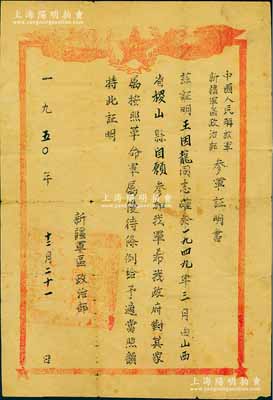 上海阳明拍卖
中國人民解放軍
新疆軍區政治部
參軍証明書
茲証明王因龍同志確於一九四九年三月由山西
省稷山縣自願參加我軍希我政府對其家
屬按照革命軍屬優待條例給予適當照顧
特此証明
新疆軍區政治部
一九五〇年十二月二十一日
上海阳明拍卖